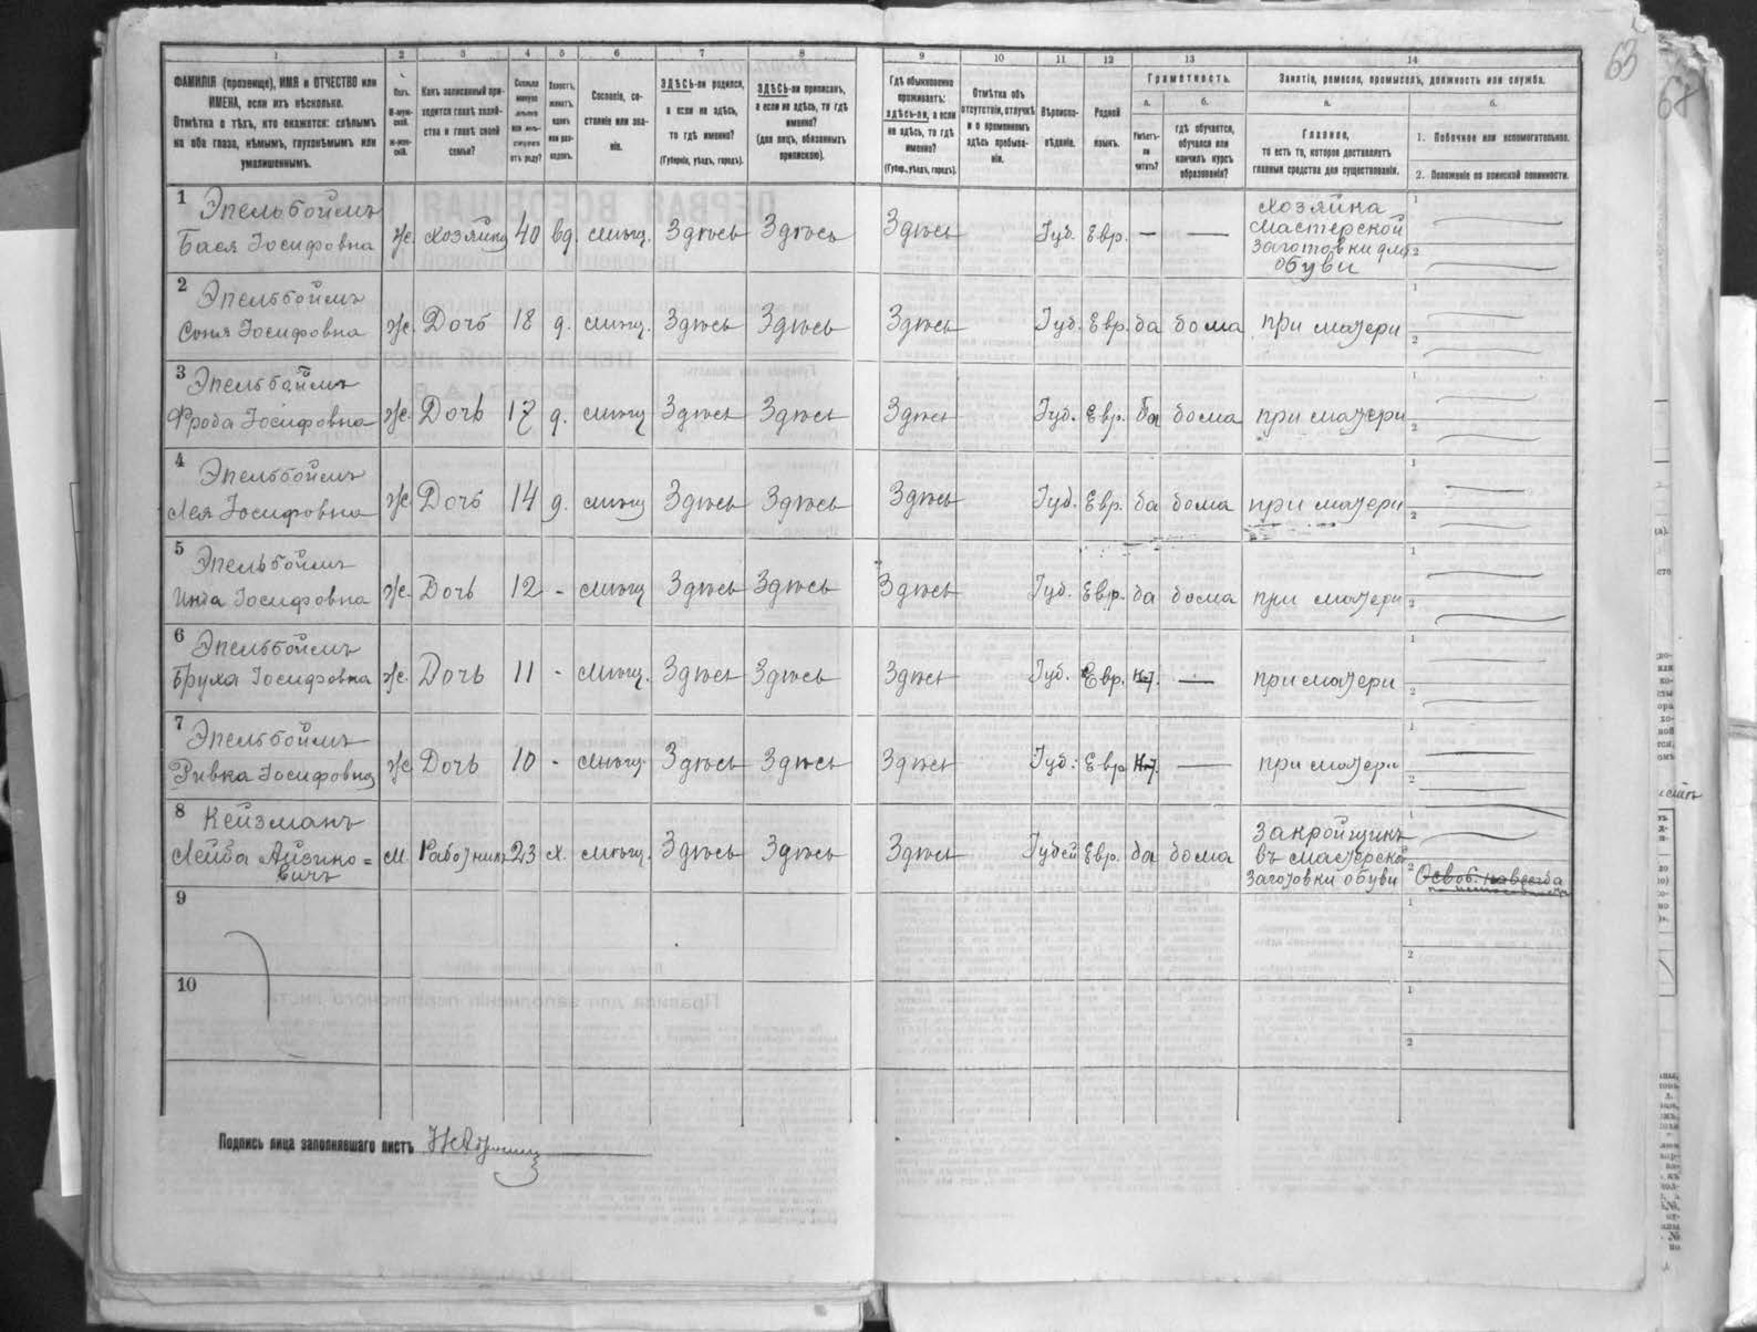 63
68
1 2 3 4 5 6 7 8 9 10 11 12 13 14
ФАМИЛІЯ (прозвище), ИМЯ и ОТЧЕСТВО или
ИМЕНА, если ихъ нѣсколько.
Отмѣтка о тѣхъ, кто окажется: слѣпымъ
на оба глаза, нѣмымъ, глухонѣмымъ или
умалишеннымъ.
Полъ.
М-муж-
ской.
Ж-жен-
скій.
Какъ записанный при-
ходится главѣ хозяй-
ства и главѣ своей
семьи?
Сколько
минуло
лѣтъ
или мѣ-
сяцевъ
отъ роду?
Холостъ,
женатъ,
вдовъ
или раз-
веденъ.
Сословіе, со-
стояніе или зва-
ніе.
ЗДѢСЬ-ли родился,
а если не здѣсь,
то гдѣ именно?
(Губернія, уѣздъ, городъ).
ЗДѢСЬ-ли приписанъ,
а если не здѣсь, то гдѣ
именно?
(для лицъ, обязанныхъ
припискою).
Гдѣ обыкновенно
проживаетъ:
здѣсь-ли, а если
не здѣсь, то гдѣ
именно?
(Губер., уѣздъ, городъ).
Отмѣтка объ
отсутствіи, отлучкѣ
и о временномъ
здѣсь пребыва-
ніи.
Вѣроиспо-
вѣданіе.
Родной
языкъ.
Грамотность.
а.
Умѣетъ-
ли
читать?
б.
гдѣ обучается,
обучался или
кончилъ курсъ
образованія?
Занятіе, ремесло, промыселъ, должность или служба.
а.
Главное,
то есть то, которое доставляетъ
главныя средства для существованія.
б.
1. Побочное или вспомогательное.
2. Положеніе по воинской повинности.
1 Эпельбоймъ
Бася Іосифовна Ж. Хозяйка 40 вд. мѣщ. Здѣсь Здѣсь Здѣсь Іуд. Евр. — —
Хозяйка
мастерской
заготовки для
обуви
2 Эпельбоймъ
Соня Іосифовна Ж. Дочь 18 д. мѣщ. Здѣсь Здѣсь Здѣсь Іуд. Евр. да дома при матери
3 Эпельбоймъ
Фрода Іосифовна Ж. Дочь 17 д. мѣщ Здѣсь Здѣсь Здѣсь Іуд. Евр. да дома при матери
4 Эпельбоймъ
Лея Іосифовна Ж Дочь 14 д. мѣщ Здѣсь Здѣсь Здѣсь Іуд. Евр. да дома при матери
5 Эпельбоймъ
Инда Іосифовна Ж. Дочь 12 - мѣщ Здѣсь Здѣсь Здѣсь Іуд. Евр. да дома при матери
6 Эпельбоймъ
Бруха Іосифовна Ж. Дочь 11 - мѣщ. Здѣсь Здѣсь Здѣсь Іуд. Евр. — при матери
7 Эпельбоймъ
Ривка Іосифовна Ж Дочь 10 - мѣщ. Здѣсь Здѣсь Здѣсь Іуд. Евр — при матери
8 Кейзманъ
Лейба Айзико=
вичъ М. Работникъ 23 х. мѣщ. Здѣсь Здѣсь Здѣсь Іудей Евр. да дома
Закройщикъ
въ мастерской
заготовки обуви
Освоб. навсегда
9
10
Подпись лица заполнявшаго листъ